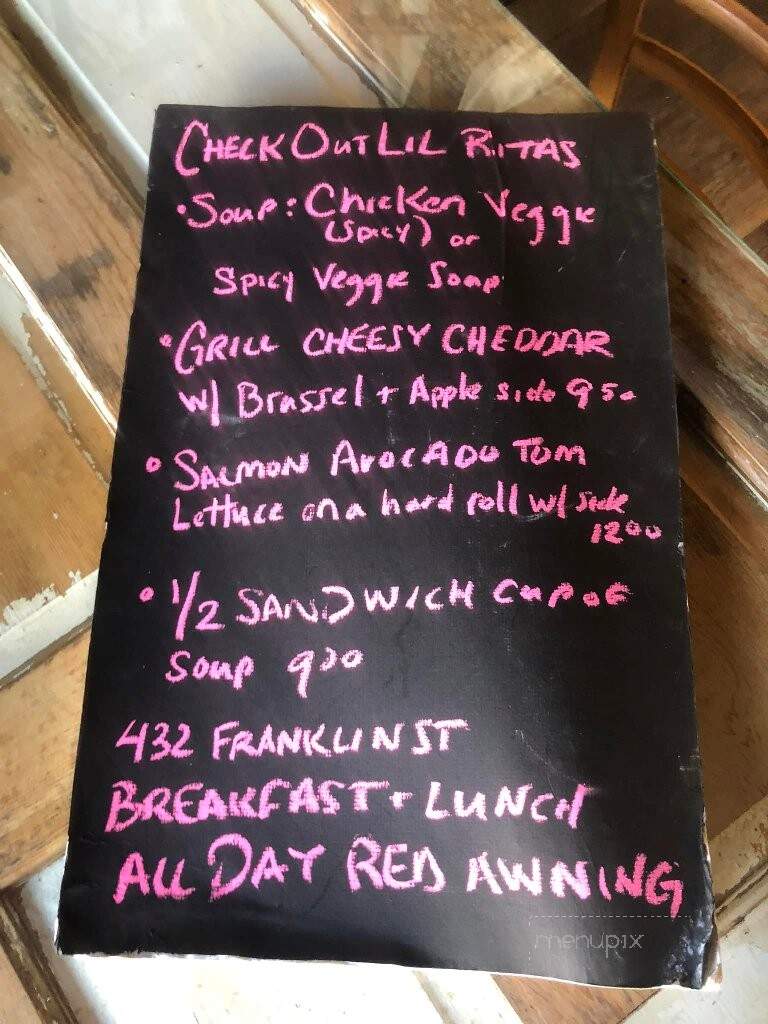 CHECK OUT LIL RITAS
• Soup: Chicken Veggie
(Spicy) or
Spicy Veggie Soup
• GRILL CHEESY CHEDDAR
w/ Brussel + Apple side 950
• SALMON AVOCADO TOM
Lettuce on a hard roll w/ side
1200
• 1/2 SANDWICH CUP OF
Soup 900
432 FRANKLIN ST
BREAKFAST + LUNCH
ALL DAY RED AWNING
menupix